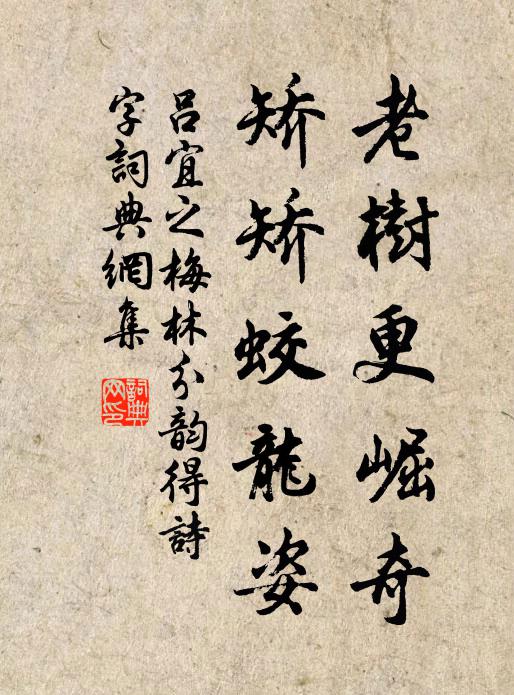 老樹更崛奇
矯矯蛟龍姿
呂宜之梅林分韵得詩
字詞典網集
詞典
网印